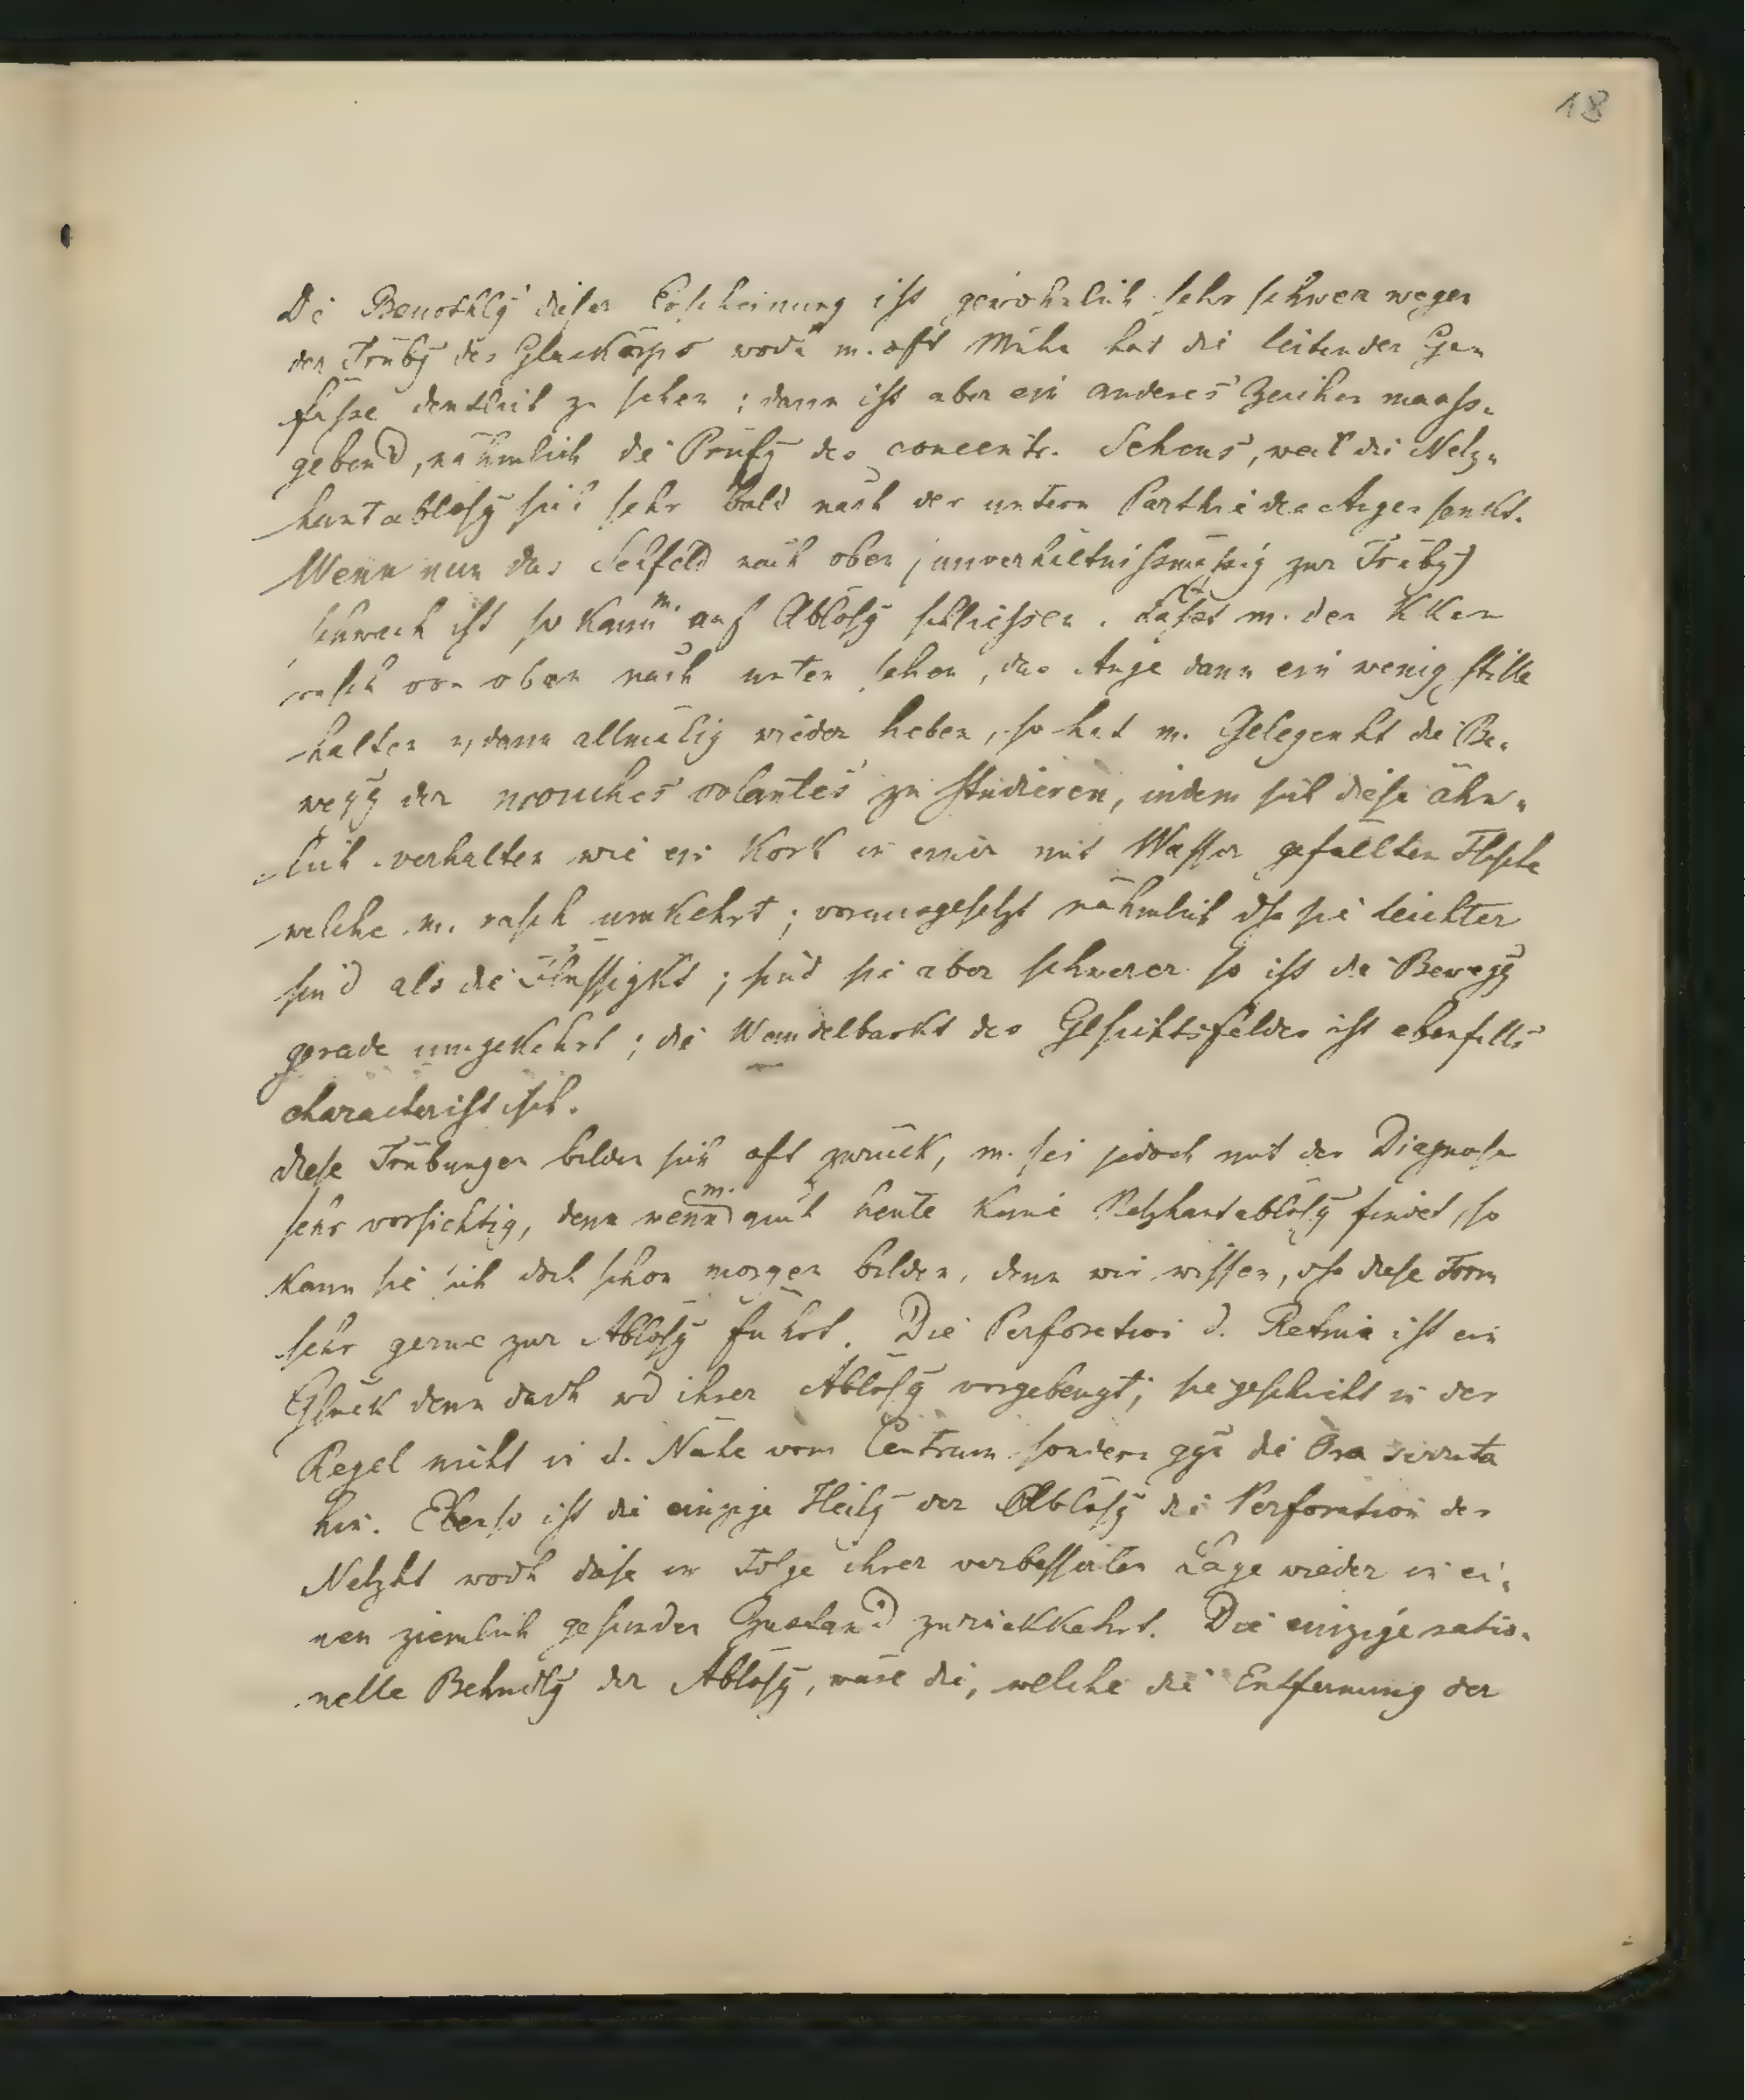 18
Die Beurthlg dieser Erscheinung ist gewöhnlich sehr schwer wegen
der Trübg des Glaskörps wodh m. oft Mühe hat die leitenden Ge=
fässe deutlich zu sehen; dann ist aber ein anderes Zeichen maass=
gebend, nähmlich die Prüfg des concentr. Sehens, weil die Netz=
hautablösg sich sehr bald nach der untern Parthie des Auges senkt.
Wenn nun das Sehfeld nach oben (unverhältnissmässig zur Trübg)
schwach ist so kann m. auf Ablösg schliessen. Lässt m. den KKen
rasch von oben nach unten sehen, das Auge dann ein wenig stille
halten u, dann allmälig wieder heben, so hat m. Gelegenht die Be=
wegg der mouches volantes zu studieren, indem sich diese ähn=
lich verhalten wie ein Kork in einer mit Wasser gefüllten Flasche
welche m. rasch umkehrt; vorausgesetzt nähmlich dss sie leichter
sind als die Flüssigkt; sind sie aber schwerer so ist die Bewegg
gerade umgekehrt; die Wandelbarkt des Gesichtsfeldes ist ebenfalls
characteristisch.
diese Trübungen bilden sich oft zurück, m. sei jedoch mit der Diagnose
sehr vorsichtig, denn wenn m. auch heute keine Netzhautablösg findet, so
kann sie sich doch schon morgen bilden, denn wir wissen, dss diese Form
sehr gerne zur Ablösg führt. Die Perforation d. Retina ist ein
Glück denn dadh wd ihrer Ablösg vorgebeugt; sie geschieht in der
Regel nicht in d. Nähe vom Centrum sondern gge die Ora serrata
hin. Ebenso ist die einzige Heilg der Ablösg die Perforation der
Netzht wodh diese in Folge ihrer verbesserten Lage wieder in ei=
nen ziemlich gesunden Zustand zurückkehrt. Die einzige ratio=
nelle Behndlg der Ablösg, wäre die, welche die Entfernung der